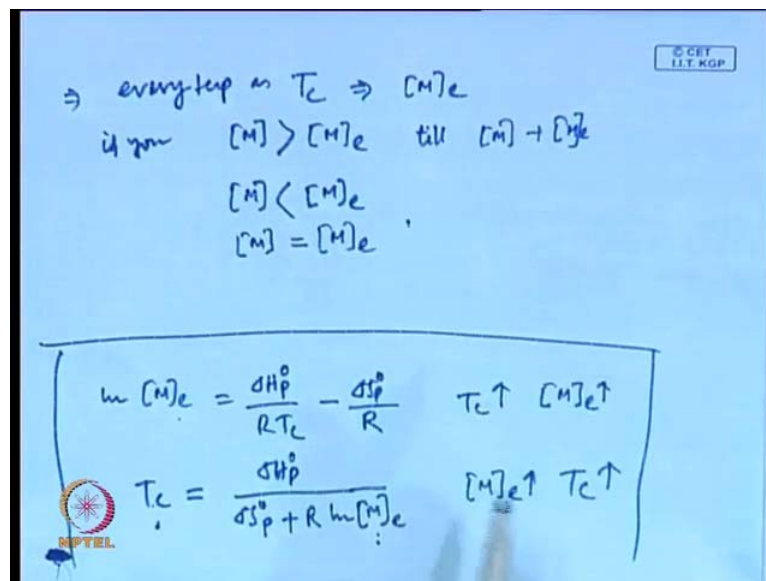 © CET
I.I.T. KGP
⇒ every temp as Tc ⇒ [M]e
if you [M] > [M]e till [M] → [M]e
[M] < [M]e
[M] = [M]e
ln [M]e = ΔHp° / RTc − ΔSp° / R Tc↑ [M]e↑
Tc = ΔHp° / ΔSp° + R ln [M]e [M]e↑ Tc↑
NPTEL